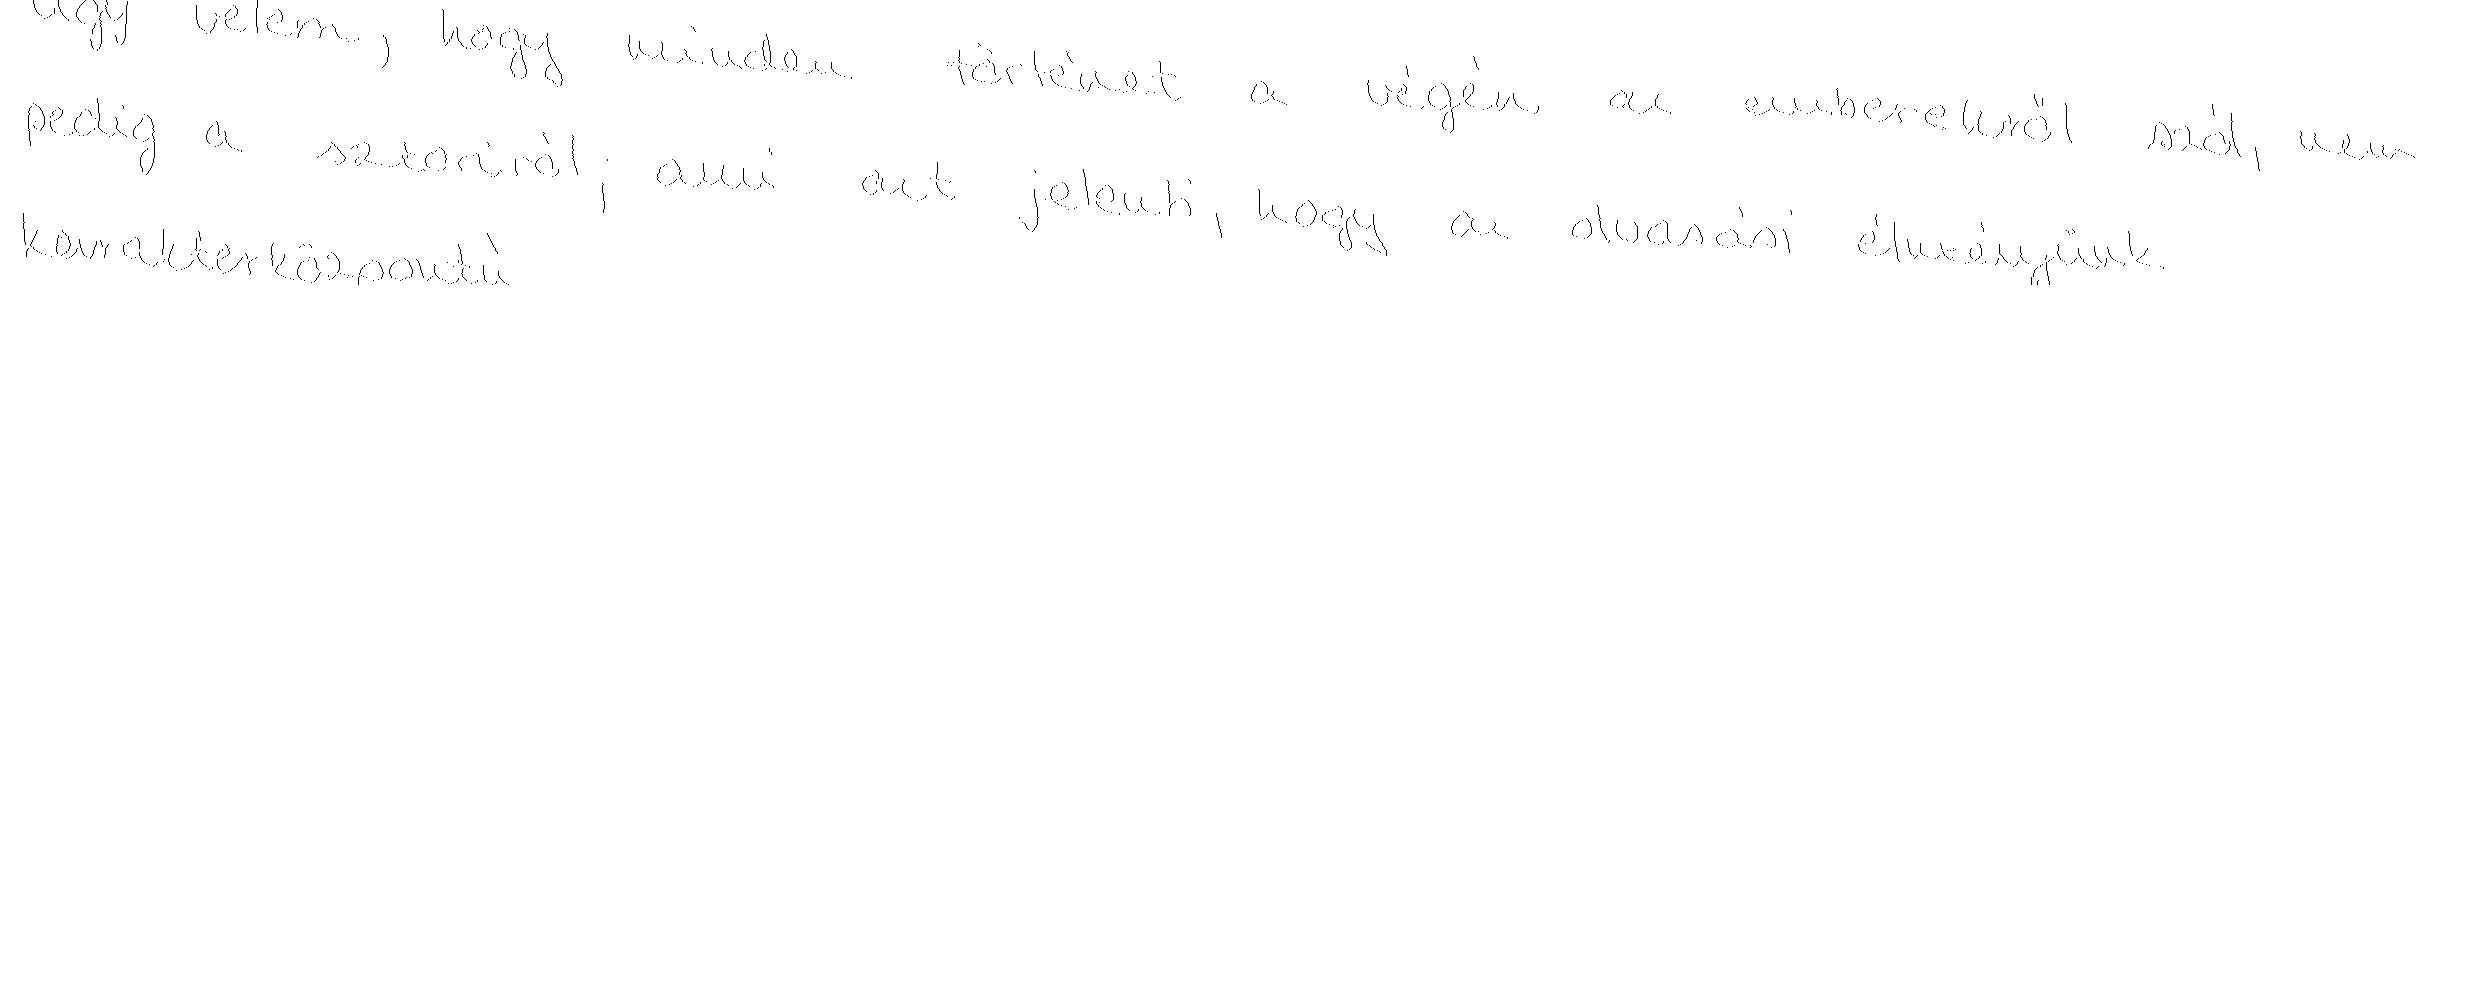 úgy vélem, hogy minden történet a végén az emberekről szól, nem
pedig a sztoriról; ami azt jelenti, hogy az olvasási élményünk
karakterközpontú